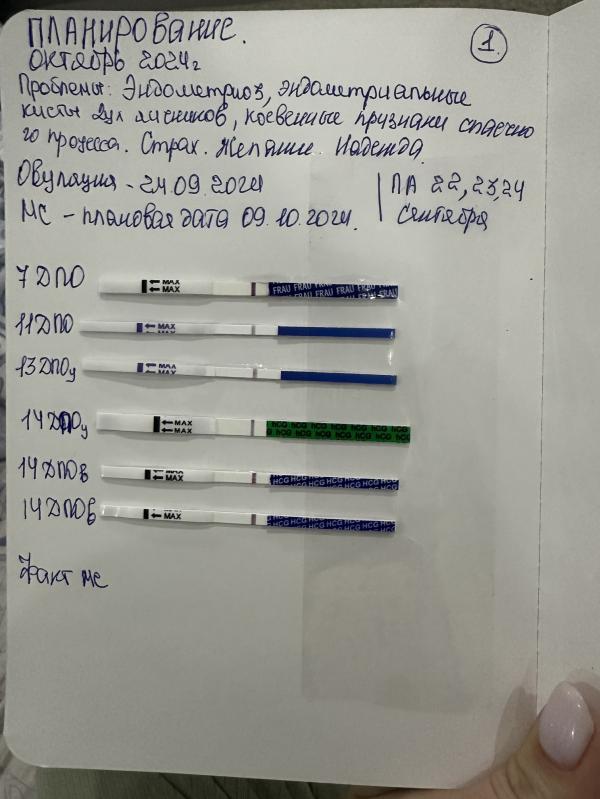 ПЛАНИРОВАНИЕ.
ОКТЯБРЬ 2024г
1.
Проблемы: Эндометриоз, эндометриальные
кисты 2ух яичников, косвенные признаки спаечно
го процесса. Страх. Желание. Надежда.
Овуляция - 24.09.2024
ПА 22,23,24
Сентября
МС - плановая дата 09.10.2024.
7 ДПО
← MAX
← MAX
FRAU FRAU FRAU FRAU FRAU
FRAU FRAU FRAU FRAU
11 ДПО
← MAX
13 ДПОу
← MAX
14 ДПОу
← MAX
← MAX
hCG hCG hCG hCG hCG hCG hCG
hCG hCG hCG hCG hCG hCG hCG
14 ДПОв
← MAX
HCG HCG HCG HCG HCG HCG
14 ДПОв
← MAX
HCG HCG HCG HCG HCG HCG
Факт мс